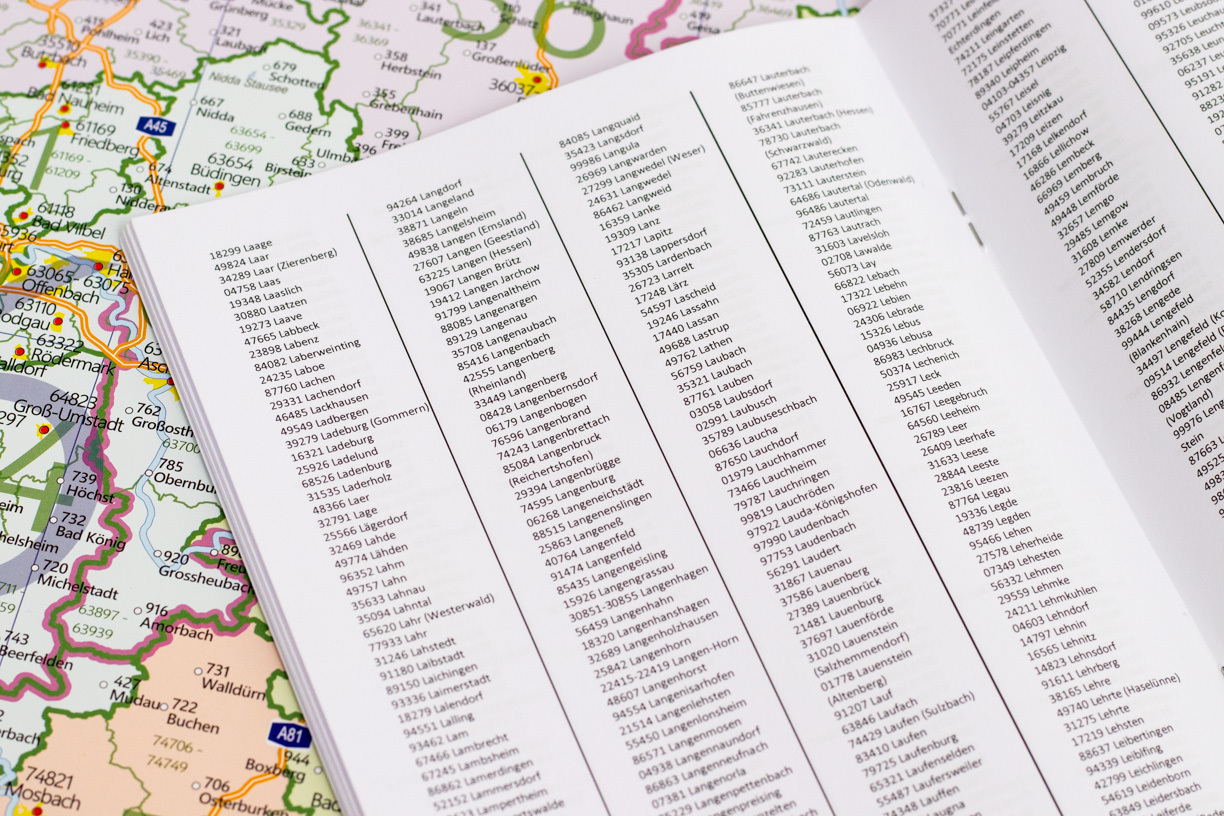 341
Lauterbach
110
Schlitz
Grünberg
35329
36341 -
36369
415
Pohlheim
423
Lich
321
Laubach
35510
Butzbach
35390 -
35469
679
Schotten
Nidda Stausee
358
Herbstein
137
Großenlüder
36037
61231
Bad Nauheim
A45
667
Nidda
688
Gedern
355
Grebenhain
399
396
61169
Friedberg
61169 -
61209
63654 -
63699
63654
Büdingen
633
Birstein
674
Altenstadt
130
61118
Bad Vilbel
63065- 63075
Offenbach
63110
63322
Rödermark
64823
Groß-Umstadt
762
785
739
Höchst
732
Bad König
720
Michelstadt
920
Grossheubach
63897 -
63939
916
Amorbach
743
Beerfelden
427
Mudau
731
Walldürn
722
Buchen
74706 -
74749
A81
944
Boxberg
706
Osterburken
74821
Mosbach
18299 Laage
49824 Laar
34289 Laar (Zierenberg)
04758 Laas
19348 Laaslich
30880 Laatzen
19273 Laave
47665 Labbeck
23898 Labenz
84082 Laberweinting
24235 Laboe
87760 Lachen
29331 Lachendorf
46485 Lackhausen
49549 Ladbergen
39279 Ladeburg (Gommern)
16321 Ladeburg
25926 Ladelund
68526 Ladenburg
31535 Laderholz
48366 Laer
32791 Lage
25566 Lägerdorf
32469 Lahde
49774 Lähden
96352 Lahm
49757 Lahn
35633 Lahnau
35094 Lahntal
65620 Lahr (Westerwald)
77933 Lahr
31246 Lahstedt
91180 Laibstadt
89150 Laichingen
93336 Laimerstadt
18279 Lalendorf
94551 Lalling
93462 Lam
67466 Lambrecht
67245 Lambsheim
86862 Lamerdingen
52152 Lammersdorf
Lampertheim
94264 Langdorf
33014 Langeland
38871 Langeln
38685 Langelsheim
49838 Langen (Emsland)
27607 Langen (Geestland)
63225 Langen (Hessen)
19067 Langen Brütz
19412 Langen Jarchow
91799 Langenaltheim
88085 Langenargen
89129 Langenau
35708 Langenaubach
85416 Langenbach
42555 Langenberg
(Rheinland)
33449 Langenberg
08428 Langenbernsdorf
06179 Langenbogen
76596 Langenbrand
74243 Langenbrettach
85084 Langenbruck
(Reichertshofen)
29394 Langenbrügge
74595 Langenburg
06268 Langeneichstädt
88515 Langenenslingen
25863 Langeneß
40764 Langenfeld
91474 Langenfeld
85435 Langengeisling
15926 Langengrassau
30851-30855 Langenhagen
56459 Langenhahn
18320 Langenhanshagen
32689 Langenholzhausen
25842 Langenhorn
22415-22419 Langen-Horn
48607 Langenhorst
94554 Langenisarhofen
21514 Langenlehsten
55450 Langenlonsheim
86571 Langenmosen
04938 Langennaundorf
86863 Langenneufnach
07381 Langenorla
06229 Langenpettenbach
Langenpreising
84085 Langquaid
35423 Langsdorf
99986 Langula
26969 Langwarden
27299 Langwedel (Weser)
24631 Langwedel
86462 Langweid
16359 Lanke
19309 Lanz
17217 Lapitz
93138 Lappersdorf
35305 Lardenbach
26723 Larrelt
17248 Lärz
54597 Lascheid
19246 Lassahn
17440 Lassan
49688 Lastrup
49762 Lathen
56759 Laubach
35321 Laubach
87761 Lauben
03058 Laubsdorf
02991 Laubusch
35789 Laubuseschbach
06636 Laucha
87650 Lauchdorf
01979 Lauchhammer
73466 Lauchheim
79787 Lauchringen
99819 Lauchröden
97922 Lauda-Königshofen
97990 Laudenbach
97753 Laudenbach
56291 Laudert
31867 Lauenau
37586 Lauenberg
27389 Lauenbrück
21481 Lauenburg
37697 Lauenförde
31020 Lauenstein
(Salzhemmendorf)
01778 Lauenstein
(Altenberg)
91207 Lauf
63846 Laufach
74429 Laufen (Sulzbach)
83410 Laufen
79725 Laufenburg
65321 Laufenselden
55487 Laufersweiler
74348 Lauffen
86647 Lauterbach
(Buttenwiesen)
85777 Lauterbach
(Fahrenzhausen)
36341 Lauterbach (Hessen)
78730 Lauterbach
(Schwarzwald)
67742 Lauterecken
92283 Lauterhofen
73111 Lauterstein
64686 Lautertal (Odenwald)
96486 Lautertal
72459 Lautlingen
87763 Lautrach
31603 Lavelsloh
02708 Lawalde
56073 Lay
66822 Lebach
17322 Lebehn
06922 Lebien
24306 Lebrade
15326 Lebus
04936 Lebusa
86983 Lechbruck
50374 Lechenich
25917 Leck
49545 Leeden
16767 Leegebruch
64560 Leeheim
26789 Leer
26409 Leerhafe
31633 Leese
28844 Leeste
23816 Leezen
87764 Legau
19336 Legde
48739 Legden
95466 Lehen
27578 Leherheide
07349 Lehesten
56332 Lehmen
29559 Lehmke
24211 Lehmkuhlen
04603 Lehndorf
14797 Lehnin
16565 Lehnitz
14823 Lehnsdorf
91611 Lehrberg
38165 Lehre
49740 Lehrte (Haselünne)
31275 Lehrte
17219 Lehsten
88637 Leibertingen
94339 Leiblfing
42799 Leichlingen
54619 Leidenborn
63849 Leidersbach
74211 Leingarten
72175 Leinstetten
78187 Leipferdingen
89340 Leipheim
04103-04357 Leipzig
55767 Leisel
04703 Leisnig
39279 Leitzkau
17209 Leizen
17168 Lelkendorf
16866 Lellichow
46286 Lembeck
66969 Lemberg
49459 Lembruch
49448 Lemförde
32657 Lemgo
29485 Lemgow
31608 Lemke
27809 Lemwerder
52355 Lendersdorf
34582 Lendorf
58710 Lendringsen
84435 Lengdorf
38268 Lengede
99444 Lengefeld
(Blankenhain)
34497 Lengefeld
09514 Lengefeld
86932 Lengenfeld
08485 Lengenfeld
(Vogtland)
Stein